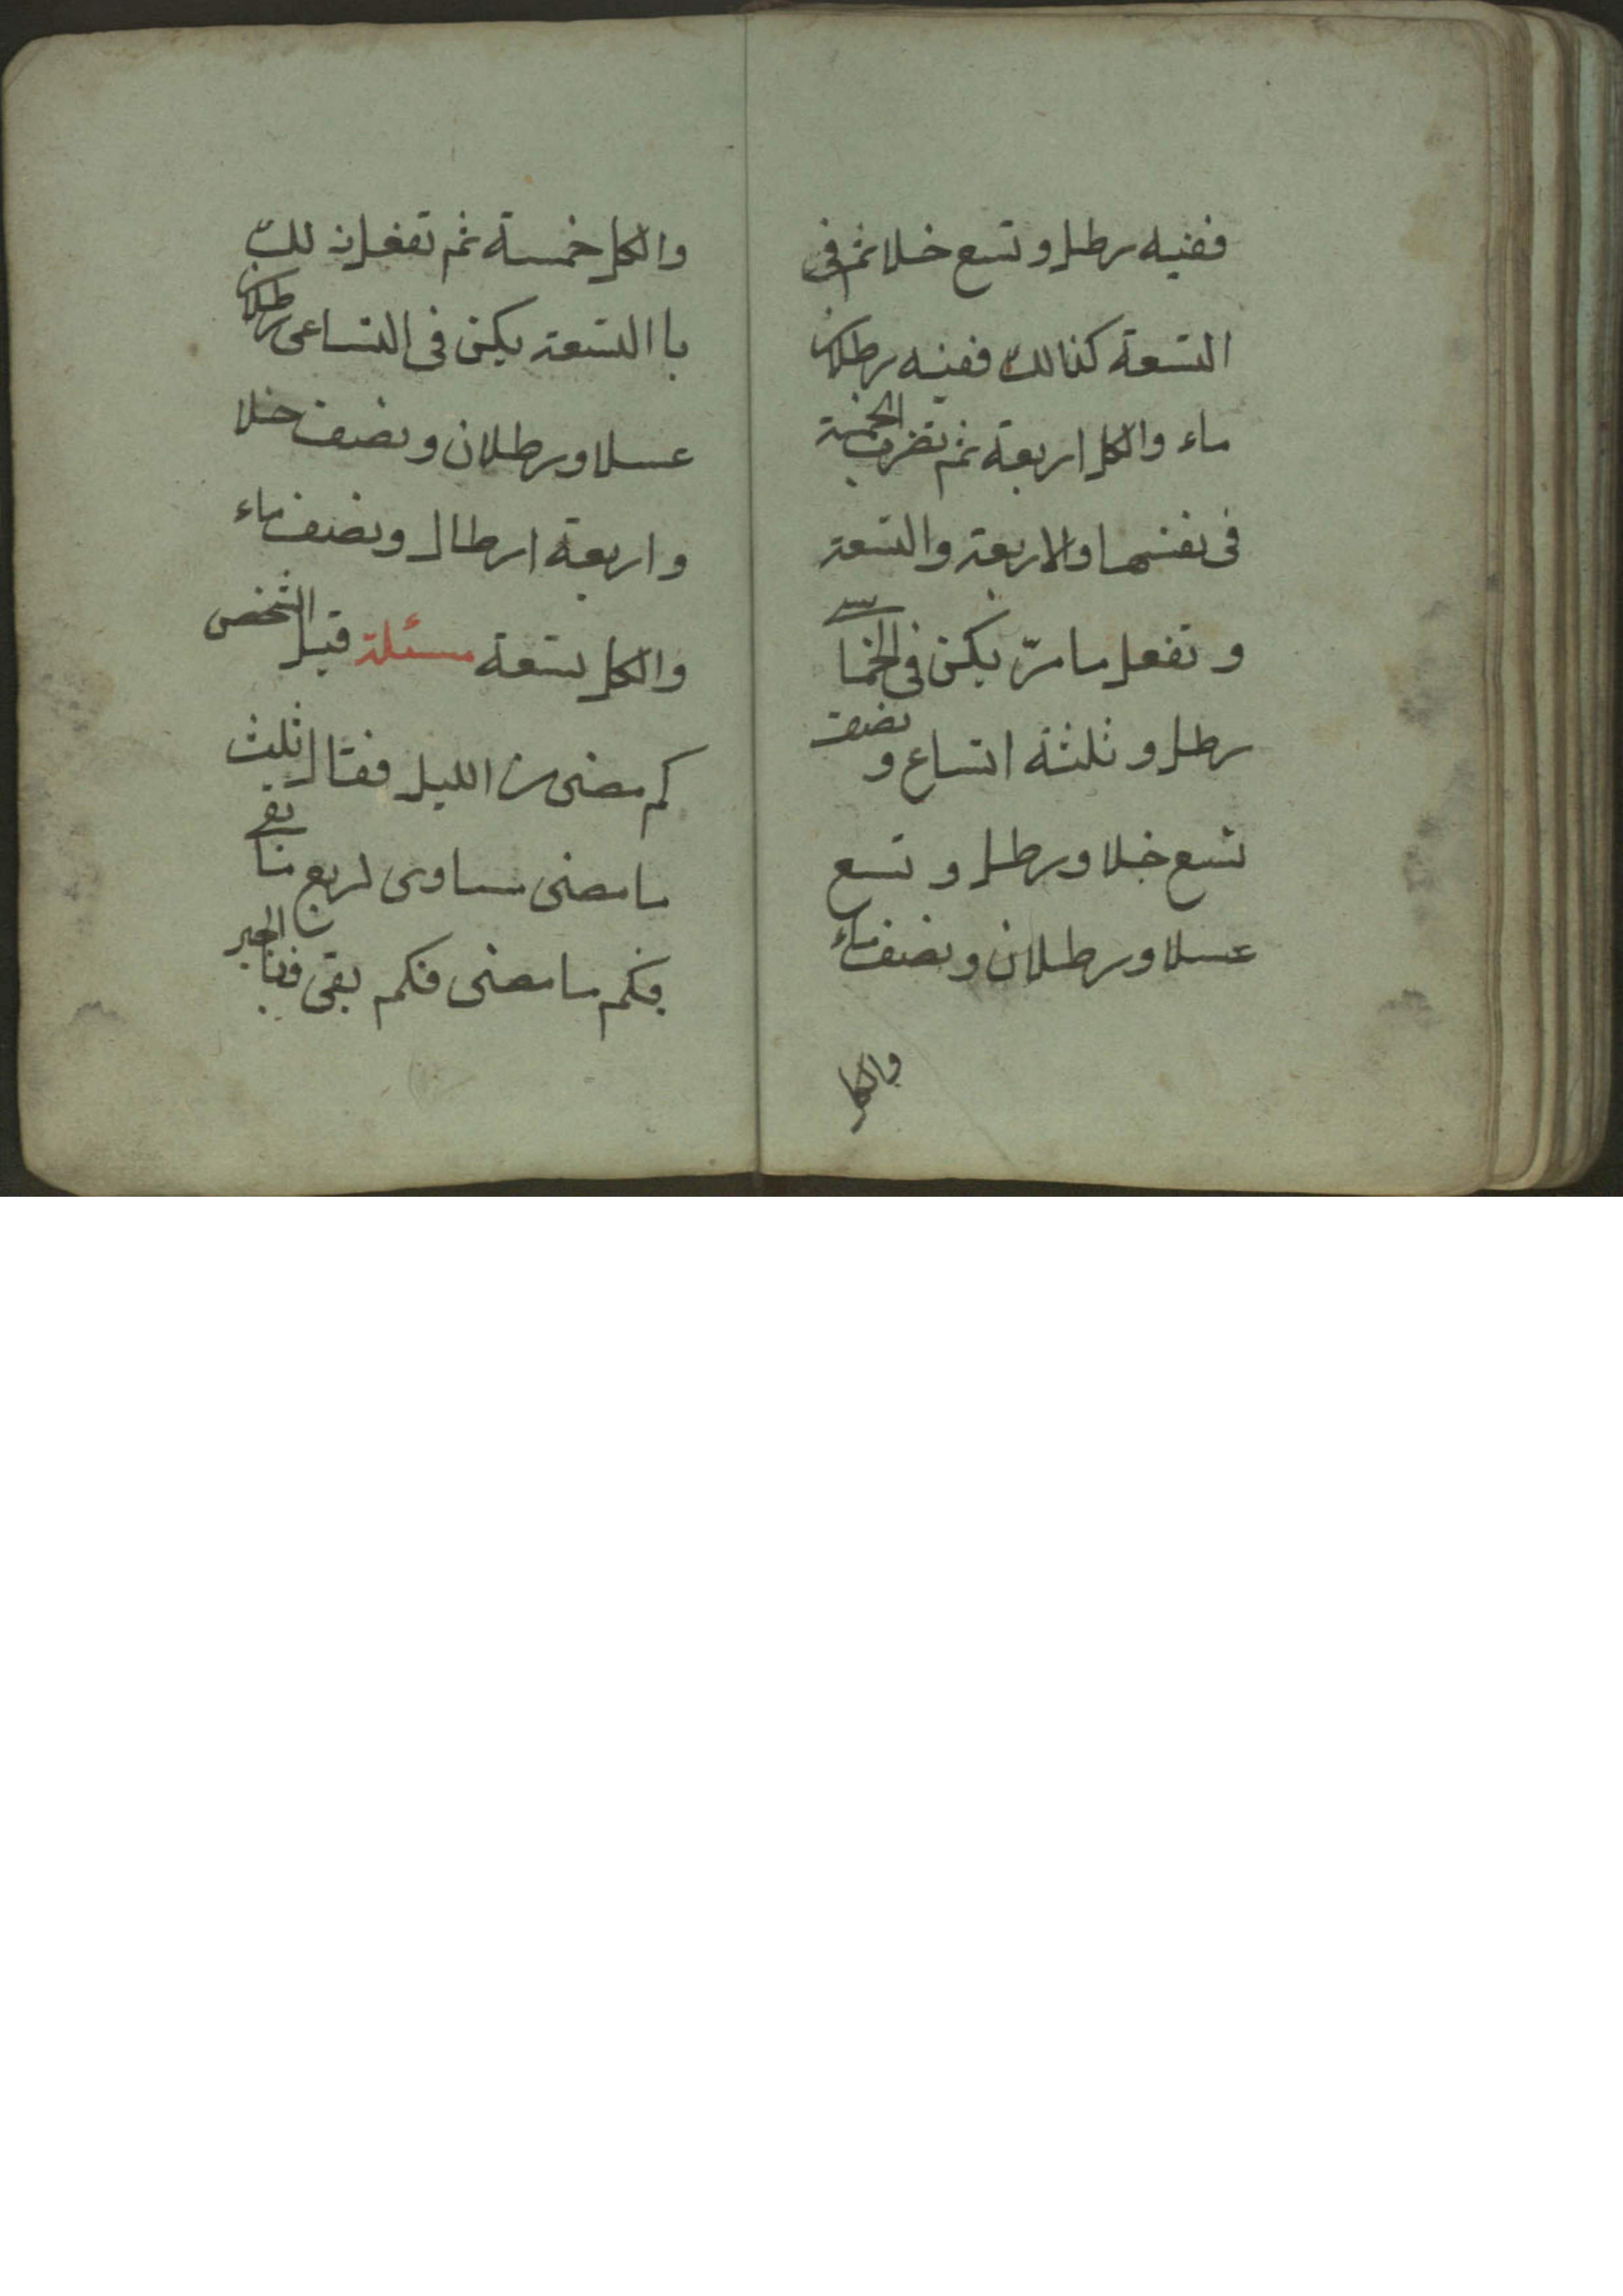 ففيه رطل وتسع خلا ثم فى
التسعة كذالك ففيه رطلان
ماء والكل اربعة ثم تضرب الخمسة
فى نفسها والاربعة والتسعة
وتفعل ما مرّ يكن فى الخماسى
رطل وثلثة اتساع ونصف
تسع خلا ورطل وتسع
عسلا ورطلان ونصف ماء
والكل
والكل خمسة ثم تفعل ذلك
باالتسعة يكن فى التساعى رطلان
عسلا ورطلان ونصف خلا
واربعة ارطال ونصف ماء
والكل تسعة مسئلة قيل لشخص
كم مضى من الليل فقال ثلث
ما مضى مساوى لربع ما بقى
فكم ما مضى فكم بقى فبالجبر